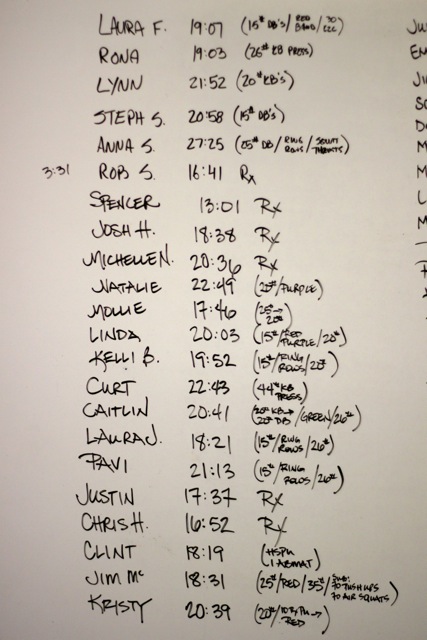 LAURA F. 19:07 (15# DB's/RED BAND/30 SEC)
RONA 19:03 (26# KB PRESS)
LYNN 21:52 (20# KB's)
STEPH S. 20:58 (15# DB's)
ANNA S. 27:25 (25# DB/RING ROWS/SQUAT THRUSTS)
3:31 ROB S. 16:41 Rx
SPENCER 13:01 Rx
JOSH H. 18:38 Rx
MICHELLE N. 20:36 Rx
NATALIE 22:49 (20#/PURPLE)
MOLLIE 17:46 (25#→20#)
LINDA 20:03 (15#/RED PURPLE/20#)
KELLI B. 19:52 (15#/RING ROWS/20#)
CURT 22:43 (44# KB PRESS)
CAITLIN 20:41 (20# KB→20# DB/GREEN/26#)
LAURA J. 18:21 (15#/RING ROWS/26#)
PAVI 21:13 (15#/RING ROWS/26#)
JUSTIN 17:37 Rx
CHRIS H. 16:52 Rx
CLINT 18:19 (HSPU 1 ABMAT)
JIM Mc 18:31 (25#/RED/35#/SUB: 70 PUSHUPS 70 AIR SQUATS)
KRISTY 20:39 (20#/10 Rx PU→RED)